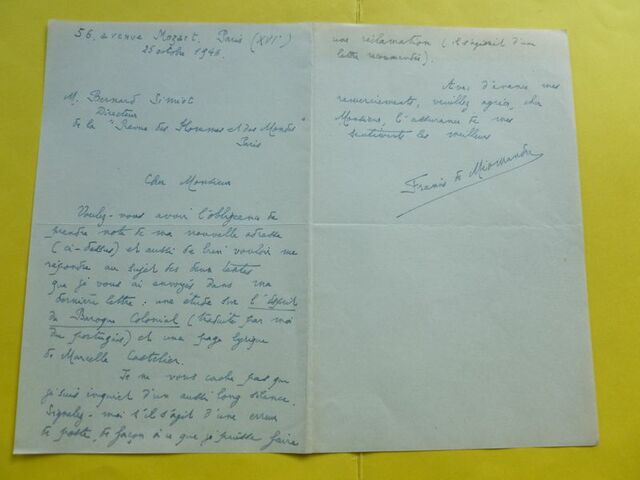 56, avenue Mozart. Paris (XVIe)
25 octobre 1946.
M. Bernard Simiot
Directeur
de la "Revue des Hommes et des Mondes"
Paris
Cher Monsieur
Voulez-vous avoir l'obligeance de
prendre note de ma nouvelle adresse
(ci-dessus) et aussi de bien vouloir me
répondre au sujet des deux textes
que je vous ai envoyés dans ma
dernière lettre : une étude sur l'Esprit
du Baroque Colonial (traduite par moi
du portugais) et une page lyrique
de Marcelle Castelier.
Je ne vous cache pas que
je suis inquiet d'un aussi long silence.
Signalez-moi s'il s'agit d'une erreur
de poste, de façon à ce que je puisse faire
une réclamation (il s'agissait d'un
lettre recommandée).
Avec d'avance mes
remerciements, veuillez agréer, cher
Monsieur, l'assurance de mes
sentiments les meilleurs
Francis de Miomandre